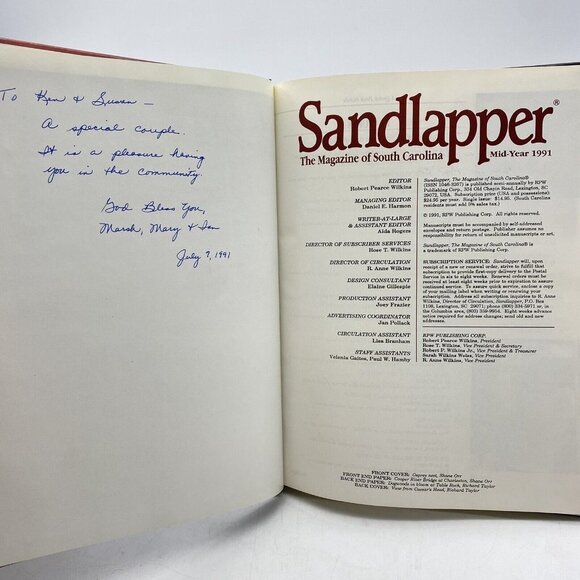 To Ken & Susan -
A special couple.
It is a pleasure having
you in the community.
God Bless You,
Marsh, Mary & Ian
July 7, 1991
Sandlapper®
The Magazine of South Carolina Mid-Year 1991
EDITOR
Robert Pearce Wilkins
MANAGING EDITOR
Daniel E. Harmon
WRITER-AT-LARGE
& ASSISTANT EDITOR
Aïda Rogers
DIRECTOR OF SUBSCRIBER SERVICES
Rose T. Wilkins
DIRECTOR OF CIRCULATION
R. Anne Wilkins
DESIGN CONSULTANT
Elaine Gillespie
PRODUCTION ASSISTANT
Joey Frazier
ADVERTISING COORDINATOR
Jan Pollack
CIRCULATION ASSISTANT
Lisa Branham
STAFF ASSISTANTS
Velania Gaites, Paul W. Hamby
Sandlapper, The Magazine of South Carolina®
(ISSN 1046-3267) is published semi-annually by RPW
Publishing Corp., 334 Old Chapin Road, Lexington, SC
29072, USA. Subscription price (USA and possessions)
$24.95 per year. Single issue: $14.95. (South Carolina
residents must add 5% sales tax.)
© 1991, RPW Publishing Corp. All rights reserved.
Manuscripts must be accompanied by self-addressed
envelopes and return postage. Publisher assumes no
responsibility for return of unsolicited manuscripts or art.
Sandlapper, The Magazine of South Carolina® is
a trademark of RPW Publishing Corp.
SUBSCRIPTION SERVICE: Sandlapper will, upon
receipt of a new or renewal order, strive to fulfill that
subscription to provide first-copy delivery to the Postal
Service in six to eight weeks. Renewal orders must be
received at least eight weeks prior to expiration to assure
continued service. To assure quick service, enclose a copy
of your mailing label when writing or renewing your
subscription. Address all subscription inquiries to R. Anne
Wilkins, Director of Circulation, Sandlapper, P.O. Box
1108, Lexington, SC 29071; phone (800) 334-5971 or, in
the Columbia area, (803) 359-9954. Eight weeks advance
notice required for address changes; send old and new
addresses.
RPW PUBLISHING CORP.
Robert Pearce Wilkins, President
Rose T. Wilkins, Vice President & Secretary
Robert P. Wilkins Jr., Vice President & Treasurer
Sarah Wilkins Weiss, Vice President
R. Anne Wilkins, Vice President
FRONT COVER: Osprey nest, Shane Orr
FRONT END PAPER: Cooper River Bridge at Charleston, Shane Orr
BACK END PAPER: Dogwoods in bloom at Table Rock, Richard Taylor
BACK COVER: View from Caesar's Head, Richard Taylor